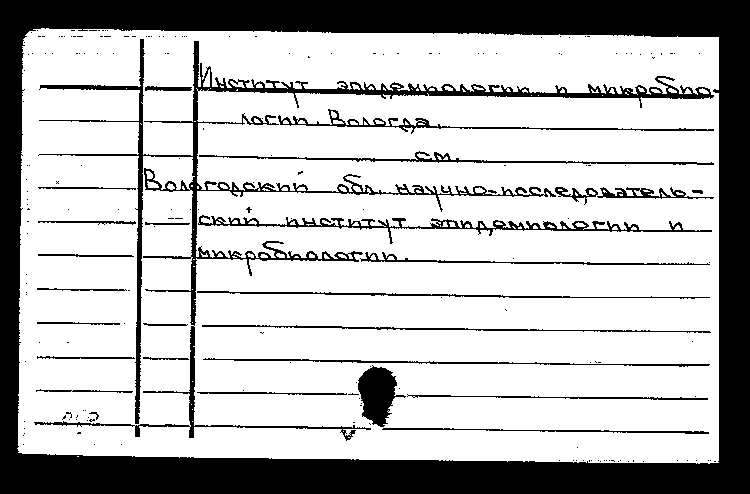 Институт эпидемиологии и микробио-
логии. Вологда.
см.
Вологодский обл. научно-последователь-
ский институт эпидемиологии и
микробиологии.